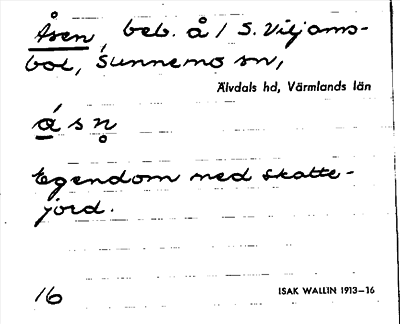 Åsen, beb. å 1 S. Viljams-
bol, Sunnemo sn,
Älvdals hd, Värmlands län
ásn̥
Egendom med skatte-
jord.
16
ISAK WALLIN 1913–16